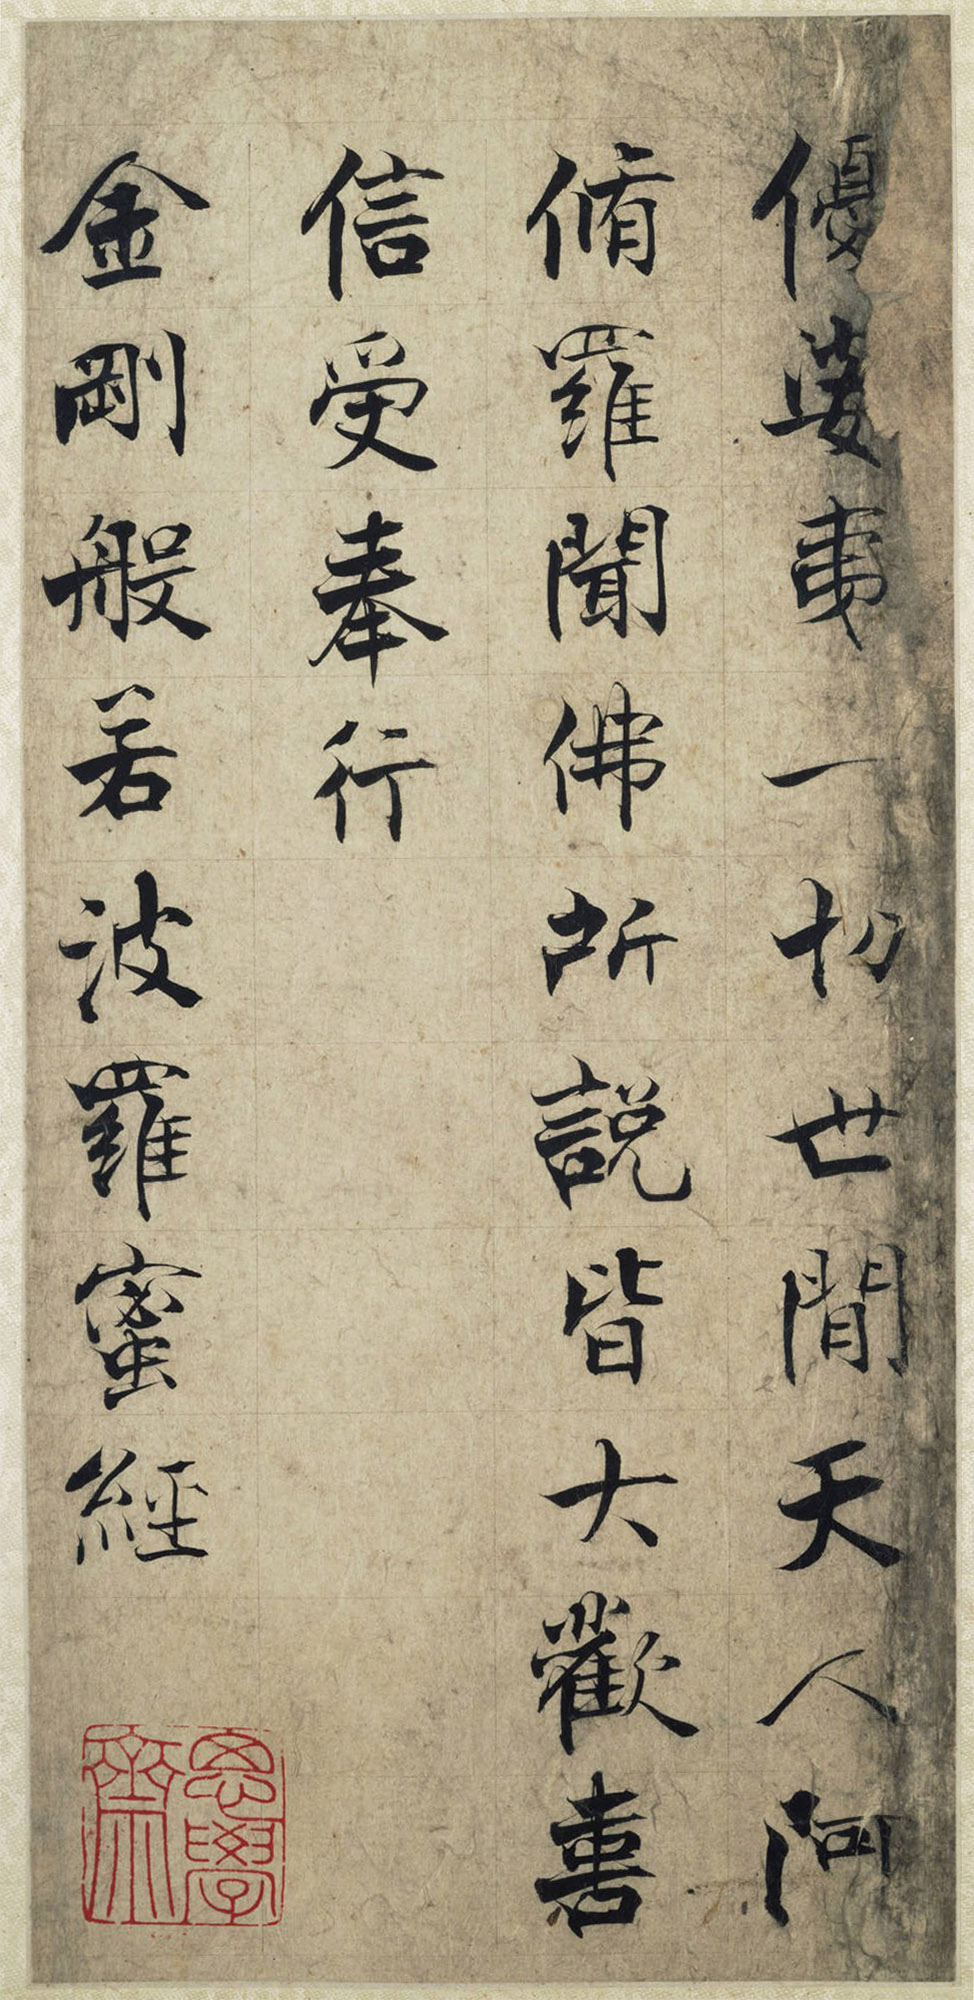 優婆夷一切世間天人阿
脩羅聞佛所說皆大歡喜
信受奉行
金剛般若波羅蜜經
思學齋